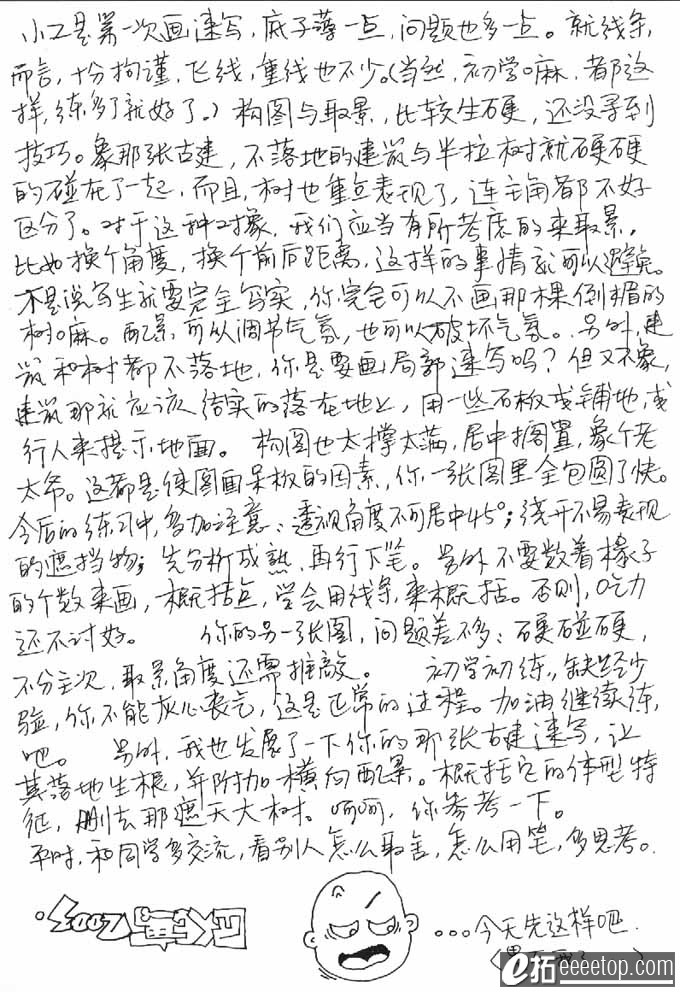 小工是第一次画速写,底子薄一点,问题也多一点。就线条,
而言,十分拘谨,飞线,重线也不少。(当然,初学嘛,都这
样,练多了就好了。)构图与取景,比较生硬,还没寻到
技巧。象那张古建,不落地的建筑与半拉树就硬硬
的碰在了一起,而且,树也重点表现了,连主角都不好
区分了。对于这种对象,我们应当有所考虑的来取景,
比如换个角度,换个前后距离,这样的事情就可以避免。
不是说写生就要完全写实,你完全可以不画那棵倒楣的
树嘛。配景,可以调节气氛,也可以破坏气氛。另外,建
筑和树都不落地,你是要画局部速写吗?但又不象,
建筑那就应该结实的落在地上,用一些石板或铺地,或
行人来提示地面。构图也太撑太满,居中搁置,象个老
太爷。这都是使图面呆板的因素,你一张图里全包圆了快。
今后的练习中,多加注意:透视角度不可居中45°;绕开不易表现
的遮挡物;先分析成熟,再行下笔。另外不要数着椽子
的个数来画,概括点,学会用线条来概括。否则,吃力
还不讨好。 你的另一张图,问题差不多:硬碰硬,
不分主次,取景角度还需推敲。 初学初练,缺经少
验,你不能灰心丧气,这是正常的过程。加油继续练,
吧。 另外,我也发展了一下你的那张古建速写,让
其落地生根,并附加横向配景。概括它的体型特
征,删去那遮天大树。呵呵,你参考一下。
平时,和同学多交流,看别人怎么取舍,怎么用笔,多思考。
...今天先这样吧.
e拓eeeetop.com